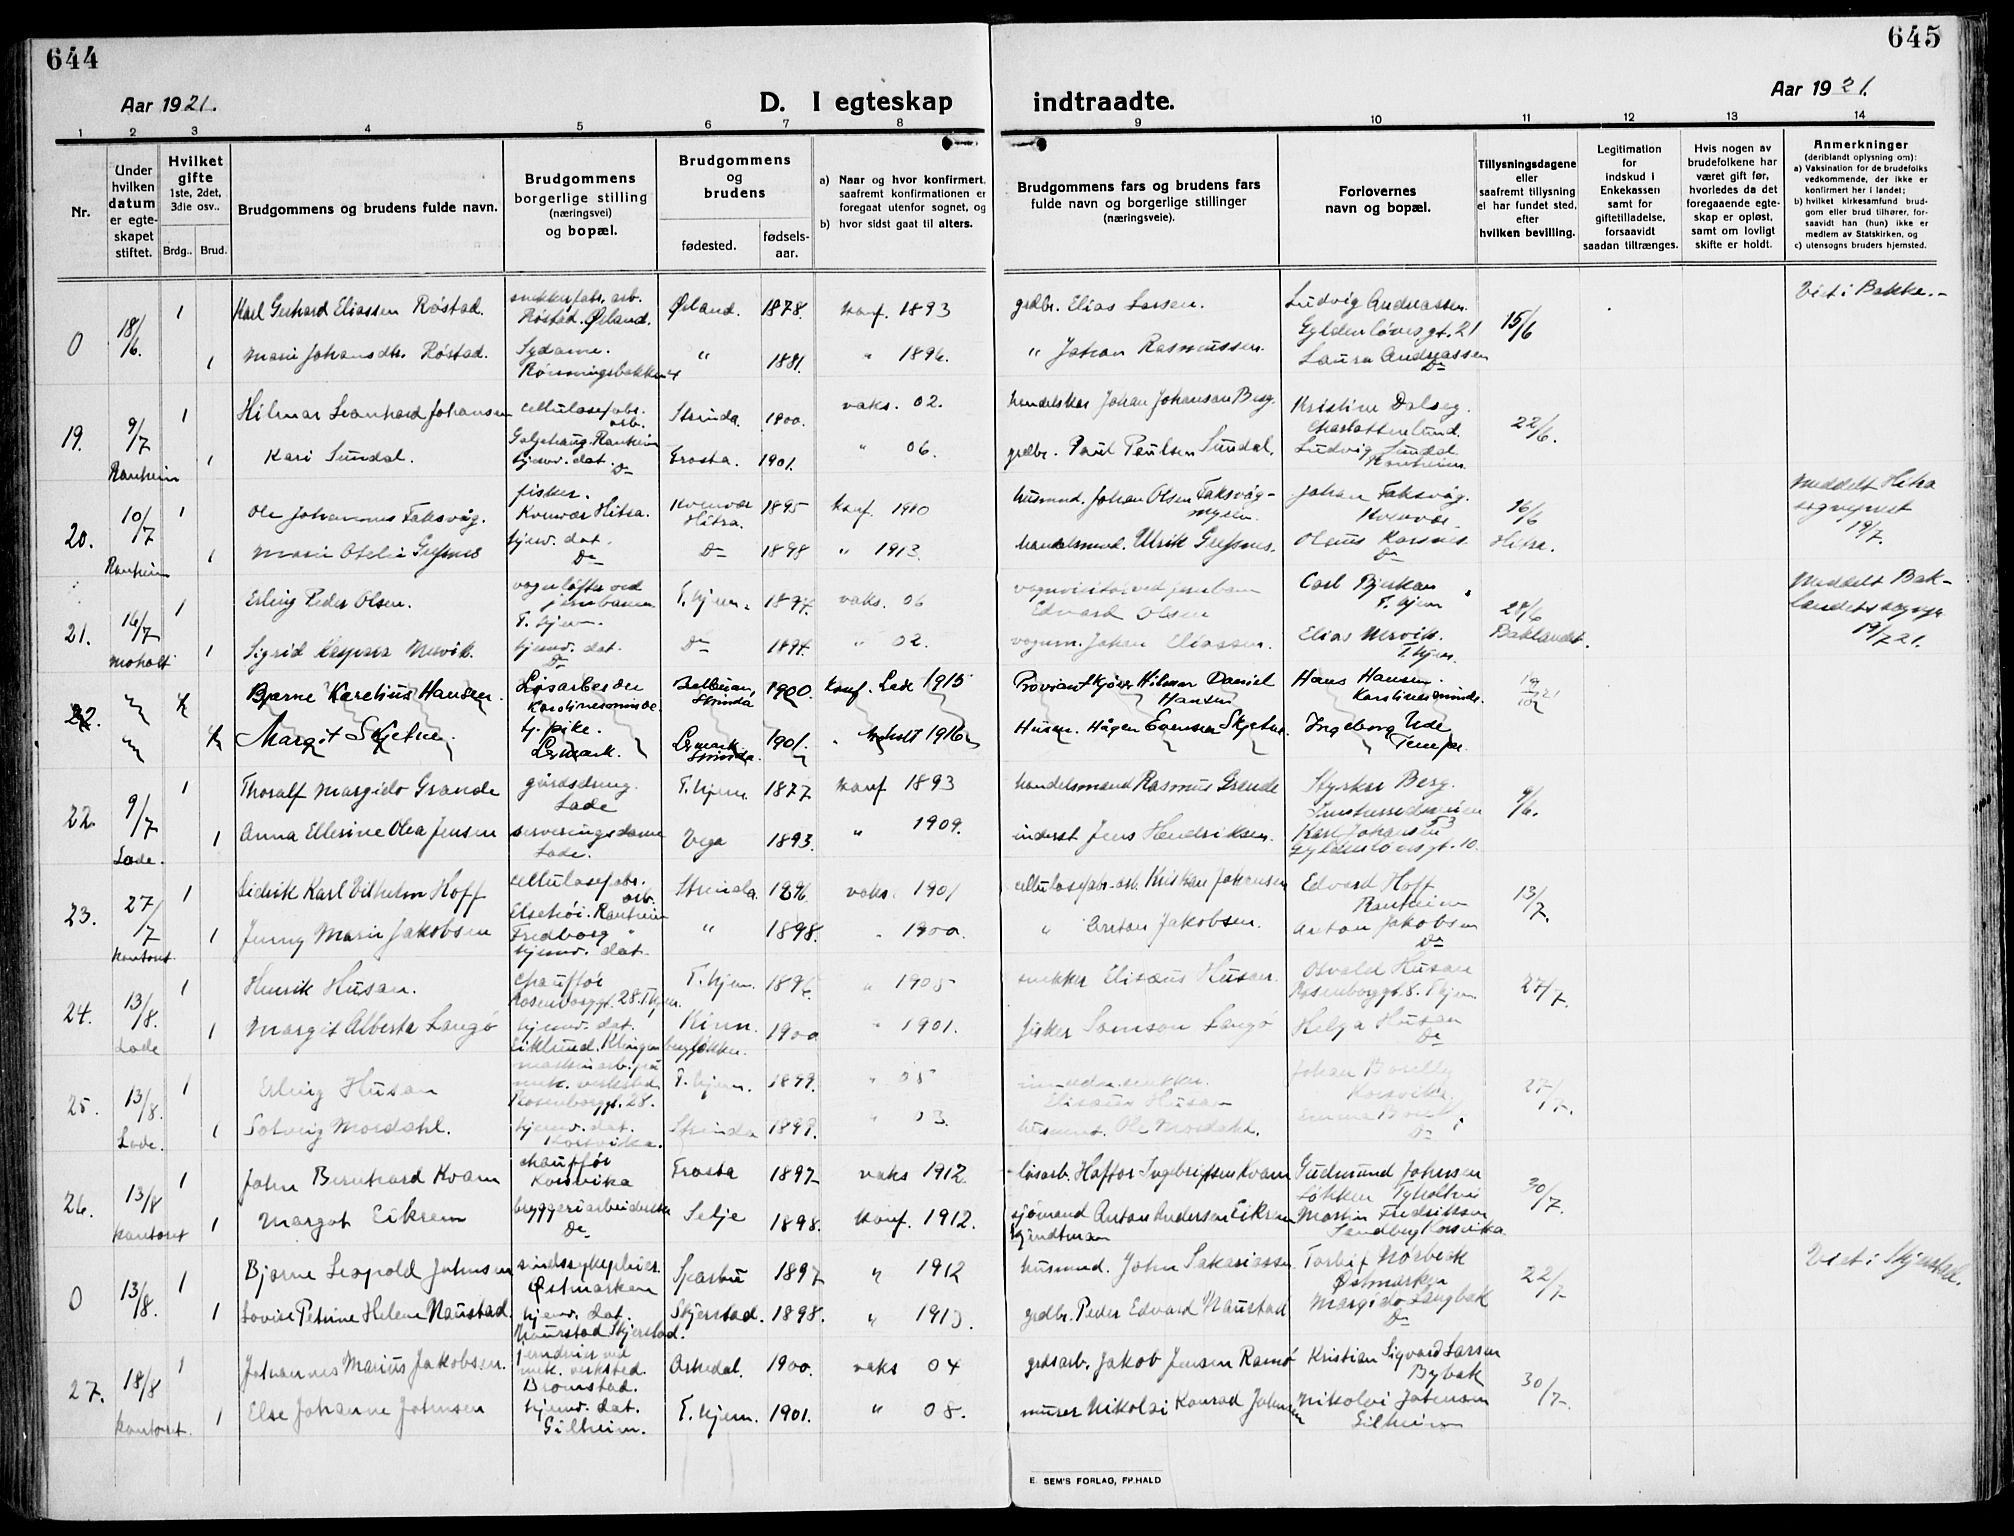 644
645
Aar 1921.
D. I egteskap indtraadte.
Aar 1921.
1 2 3 4 5 6 7 8 9 10 11 12 13 14
Nr.
Under hvilken datum er egteskapet stiftet.
Hvilket gifte 1ste, 2det, 3die osv..
Brdg.. Brud.
Brudgommens og brudens fulde navn.
Brudgommens borgerlige stilling (næringsvei) og bopæl.
Brudgommens og brudens
fødested. fødselsaar.
a) Naar og hvor konfirmert, saafremt konfirmationen er foregaat utenfor sognet, og
b) hvor sidst gaat til alters.
Brudgommens fars og brudens fars fulde navn og borgerlige stillinger (næringsveie).
Forlovernes navn og bopæl.
Tillysningsdagene eller saafremt tillysning ei har fundet sted, efter hvilken bevilling.
Legitimation for indskud i Enkekassen samt for giftetilladelse, forsaavidt saadan tiltrænges.
Hvis nogen av brudefolkene har været gift før, hvorledes da det foregaaende egteskap er opløst, samt om lovligt skifte er holdt.
Anmerkninger
(deriblandt oplysning om):
a) Vaksination for de brudefolks vedkommende, der ikke er konfirmert her i landet;
b) hvilket kirkesamfund brudgom eller brud tilhører, forsaavidt han (hun) ikke er medlem av Statskirken, og
c) utensogns bruders hjemsted.
0 18/6. 1 Karl Gerhard Eliassen Røstad. snekkerfabr. arb. Røstad. Ørland. Ørland. 1878. konf. 1893 grdbr. Elias Larsen. Ludvig Andreassen Gyldenløvesgt. 21 15/6 Viet i Bakke.-
1 Marie Johansdtr. Røstad. Sydame. Rønningsbakken 4 " 1881. " 1896. " Johan Rasmussen. Laura Andreassen Do
19. 9/7 Ranheim 1 Hilmar Leonhard Johansen cellulosefabr. arb. Galgehaug. Ranheim Strinda. 1900. vaks. 02. Johan Johansen Berg. Kristine Dalseg. Charlottenlund. 22/6.
1 Kari Sundal. hjemv. dat. Do Frosta. 1901. " 06. grdbr. Paul Paulsen Sundal. Ludvig Sundal Ranheim.
20. 10/7 Ranheim 1 Ole Johannes Faksvåg. fisker. Kvenvær Hitra. Kvenvær Hitra. 1895 konf. 1910 husmnd. Johan Olsen Faksvåg- myren. Johan Faksvåg. Kvenvær. 16/6 Hitra. Meddelt Hitra sogneprest 19/7.
1 Marie Otelie hjemv. dat. Do Do 1898 " 1913. handelsmnd. Ulrik Olaus Korsnes. Do
21. 16/7 Moholt 1 Erling Peder Olsen. vognløfter ved jernbanen. T.hjem. T.hjem. 1897. vaks. 06 vognvisitør ved jernbanen Edvard Olsen Carl Bjerkan T.hjem 28/6 Baklandet. Meddelt Baklandets sognepr 19/7 21.
1 Sigrid Nervik. hjemv. dat. Do Do 1894. " 02. vognm. Johan Eliassen. Elias Nervik. T.hjem.
22. 1 Bjarne Karelius Hansen. Løsarbeider Karolinesminde. Strinda 1900. Konf. Lade 1915 Proviantskjører Hilmar Daniel Hansen Hans Hansen Karolinesminde. 19/10 21
1 Margit Skjetne. tj. pike. Leismark. Strinda. 1901. " Moholt 1916 Husm. Hågen Evensen Skjetne. Ingeborg Ude Tempe.
22. 9/7 Lade. 1 Thoralf Margido Grande gårdsdreng. Lade T.hjem. 1877 konf 1893 handelsmand Rasmus Grande Styrkar Berg. Innherredsveien 53 9/6.
1 Anna Ellerine Olea Jensen serveringsdame Lade. Vega 1893. " 1909. inderst Jens Hendriksen. Karl Johansen Gyldenløvesgt. 10.
23. 27/7 kontoret. 1 Sidrik Karl Vilhelm Hoff cellulosefabr. arb. Elsehøi. Ranheim Strinda. 1896. vaks. 1901 cellulosefabr. arb. Kristian Johansen Edvard Hoff Ranheim 13/7.
1 Jenny Marie Jakobsen Fredborg " hjemv. dat. " 1898. " 1900. " Anton Jakobsen. Anton Jakobsen Do
24. 13/8. Lade 1 Henrik Husan. chauffør Rosenborggt. 28. T.hjem. T.hjem. 1896 " 1905 snekker Elisæus Husan. Osvald Husan Rosenborggt 8. T.hjem 27/7.
1 Margit Alberta Langø hjemv. dat. Eiklund. Klingenbergløkken. Kinn. 1900 " 1901. fisker Samson Langø Helga Husan Do
25. 13/8. Lade. 1 Erling Husan maskinarb. på mek. verksted Rosenborggt. 28. T.hjem. 1899. " 05 snekker. Elisæus Husan Johan Korsvika. 27/7.
1 Solveig Mordahl. hjemv. dat. Korsvika. Strinda 1899. " 03. husmnt. Ole Mordahl. Emma Do
26. 13/8 kontoret 1 John Bernhard Kvam chauffør Korsvika Frosta 1897 vaks 1912. løsarb. Haftor Ingebrigtsen Kvam Gudmund Johnsen Løkken Tyholtvei 30/7.
1 Margot Eikrem bryggeriarbeiderske Do Selje 1898. Konf. 1912. sjømand Anton Andersen Eikrem Martin Fredriksen Sandberg Korsvika
0 13/8. 1 Bjarne Leopold Johnsen sindssykepleier. Østmarken Sparbu 1897 " 1912 husmnd. John Sakariassen Torleif Nørbeck Østmarken 22/7. Viet i Skjerstad.
1 Lovise Petrine Helene Naustad. hjemv. dat. Naurstad Skjerstad. Skjerstad. 1898. " 1913. grdbr. Peder Edvard Naustad Margido Langbak Do
27. 18/8 kontoret. 1 Johannes Marius Jakobsen. jerndreier ved mek. verksted. Bromstad. 1900. vaks 04 grdsarb. Jakob Jensen Ramø Kristian Sigvard Larsen Bybak 30/7.
1 Else Johanne Johnsen hjemv. dat. Gilheim. T.hjem. 1901. " 08. murer Nikolai Konrad Johnsen Nikolai Johnsen Gilheim
E. SEM'S FORLAG, FR.HALD